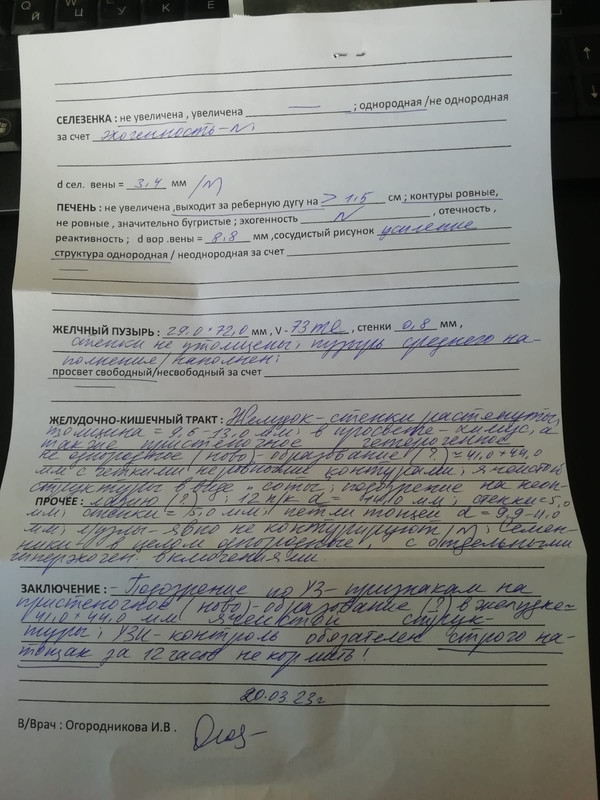 СЕЛЕЗЕНКА : не увеличена , увеличена — ; однородная /не однородная
за счет эхогенность – N.
d сел. вены = 3,4 мм /N
ПЕЧЕНЬ : не увеличена ,выходит за реберную дугу на > 1,5 см ; контуры ровные,
не ровные , значительно бугристые ; эхогенность N , отечность ,
реактивность ; d вор .вены = 8,8 мм ,сосудистый рисунок усиление
структура однородная / неоднородная за счет
—
ЖЕЛЧНЫЙ ПУЗЫРЬ : 29,0 * 72,0 мм , V - 73 ml , стенки 0,8 мм ,
стенки не утолщены, пузырь среднего на-
полнения / наполнен.
просвет свободный/несвободный за счет
—
ЖЕЛУДОЧНО-КИШЕЧНЫЙ ТРАКТ : Желудок – стенки растянуты,
толщина = 9,6-13,0 мм; в просвете – химус, а
также пристеночное гетерогенное
неоднородное (ново)-образование (?) ≈ 41,0 * 44,0
мм с четкими неровными контурами; ячеистой
структуры в виде "соты"; подозрение на неоп-
ПРОЧЕЕ : лазию (?) ; 12 п/к d = мм; стенки = 5,0
мм; стенки = 5,0 мм; петли тощей d = 9,9-11,0
мм; явно не контурируют /N/; Семен-
ники – в целом однородные, с отдельными
гиперэхоген. включениями
ЗАКЛЮЧЕНИЕ : - Подозрение по УЗ-признакам на
пристеночное (ново)-образование (?) в желудке
/ 41,0 * 44,0 мм ячеистой струк-
туры; УЗИ-контроль обязателен строго на-
тощак за 12 часов не кормить!
20.03.23г
В/Врач : Огородникова И.В .